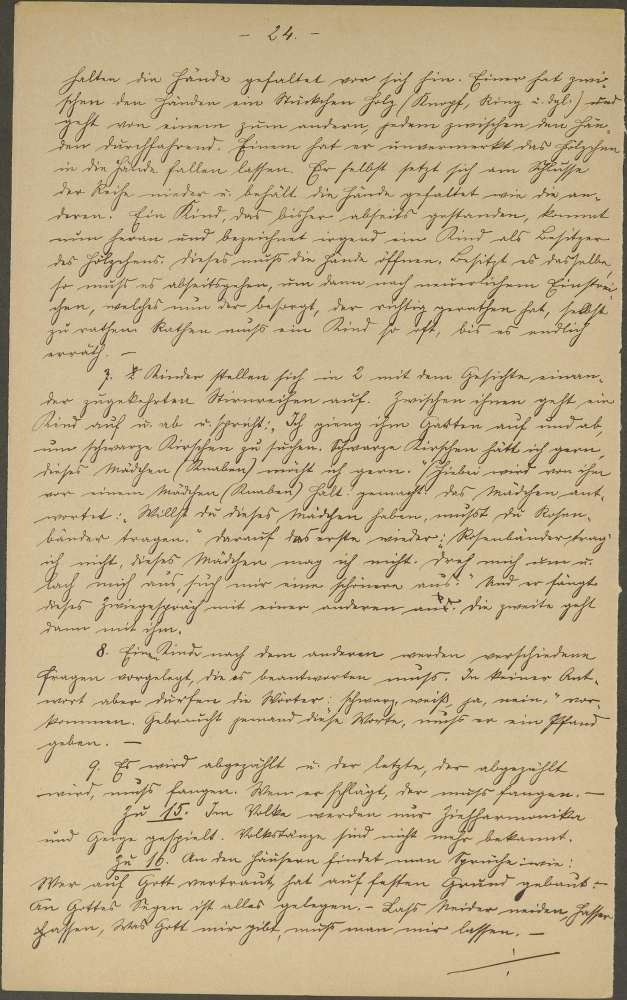 - 24. -
halten die Hände gefaltet vor sich hin. Einer hat zwi-
schen den Händen ein Stückchen Holz (Knopf, Ring u. dgl.) und
geht von einem zum andern, jedem zwischen den Hän-
den durchfahrend. Einem hat er unvermerkt das Hölzchen
in die Hände fallen lassen. Er selbst setzt sich am Schlusse
der Reihe nieder u. behält die Hände gefaltet wie die an-
deren. Ein Kind, das bisher abseits gestanden, kommt
nun heran und bezeichnet irgend ein Kind als Besitzer
des Hölzchens. Dieses muß die Hände öffnen. Besitzt es dasselbe,
so muß es abseitsgehen, um dann nach neuerlichem Einstrei-
chen, welches nun der besorgt, der richtig gerathen hat, selbst
zu rathen. Rathen muß ein Kind so oft, bis es endlich
erräth. -
7. Kinder stellen sich in 2 mit dem Gesichte einan-
der zugekehrten Stirnreihen auf. Zwischen ihnen geht ein
Kind auf u. ab u. spricht: „Ich gieng ihm Garten auf und ab,
um schwarze Kirschen zu suchen. Schwarze Kirschen hätt ich gern,
dieses Mädchen (Knaben) möcht ich gern." Hiebei wird von ihm
vor einem Mädchen (Knaben) halt gemacht. Das Mädchen ant-
wortet: „Willst du dieses Mädchen haben, mußt du Rosen-
bänder tragen." Darauf das erste wieder: „Rosenbänder trag'
ich nicht, dieses Mädchen mag ich nicht. Dreh mich um u.
lach mich aus, such mir eine schönere aus." Und er fängt
dieses Zwiegespräch mit einer anderen an. Die zweite geht
dann mit ihm.
8. Ein Kinde nach dem anderen werden verschiedene
Fragen vorgelegt, die es beantworten muß. In keiner Ant-
wort aber dürfen die Wörter: „schwarz, weiß, ja, nein," vor-
kommen. Gebraucht jemand diese Worte, muß er ein Pfand
geben. -
9. Es wird abgezählt u. der letzte, der abgezählt
wird, muß fangen. Wem er schlägt, der muß fangen. -
Zu 15. Im Volke werden nur Ziehharmonika
und Geige gespielt. Volkstänze sind nicht mehr bekannt.
Zu 16. An den Häusern findet man Sprüche wie:
Wer auf Gott vertraut, hat auf festen Grund gebaut. -
An Gottes Segen ist alles gelegen. - Laß Neider neiden, Hasser
hassen, was Gott mir gibt, muß man mir lassen. -